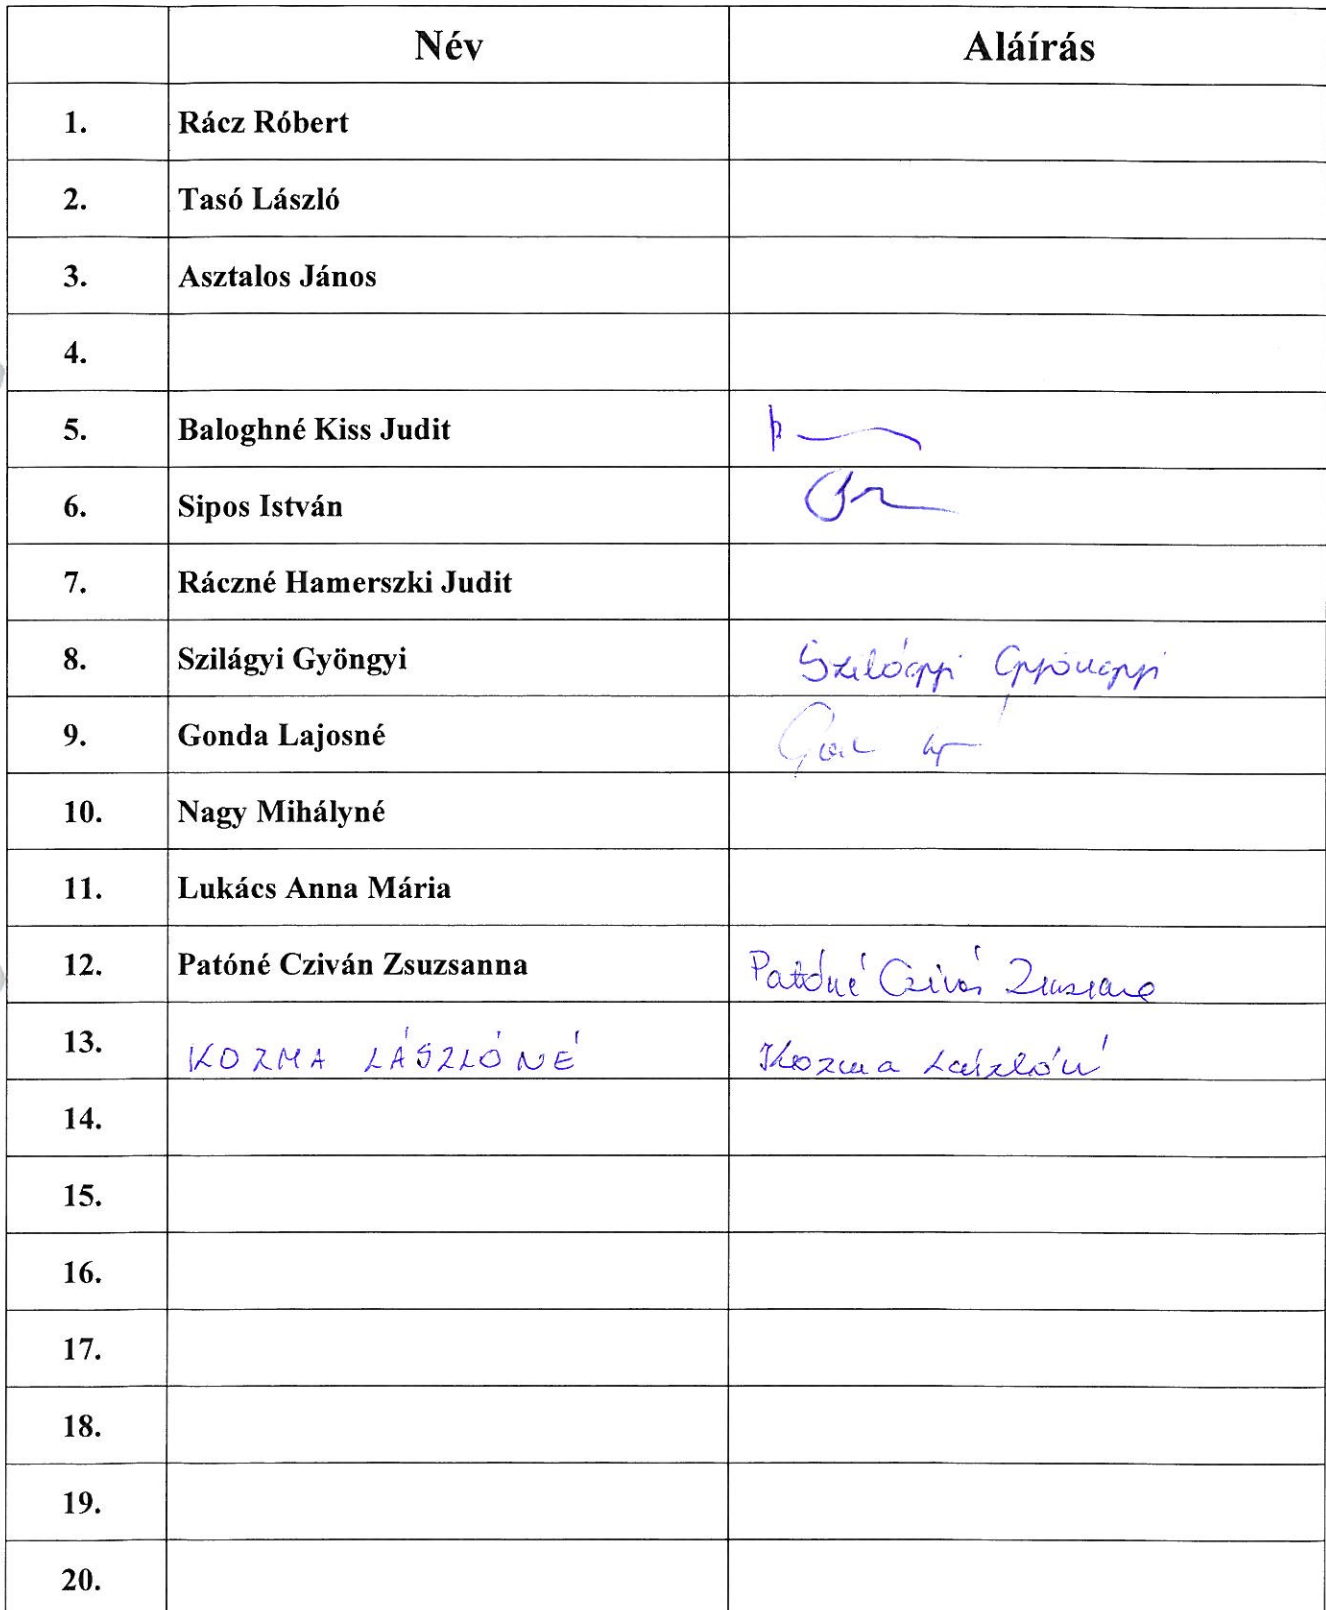 Név Aláírás
1. Rácz Róbert
2. Tasó László
3. Asztalos János
4.
5. Baloghné Kiss Judit
6. Sipos István
7. Ráczné Hamerszki Judit
8. Szilágyi Gyöngyi Szilágyi Gyöngyi
9. Gonda Lajosné
10. Nagy Mihályné
11. Lukács Anna Mária
12. Patóné Cziván Zsuzsanna Patóné Cziván Zsuzsanna
13. KOZMA LÁSZLÓNÉ Kozma Lászlóné
14.
15.
16.
17.
18.
19.
20.